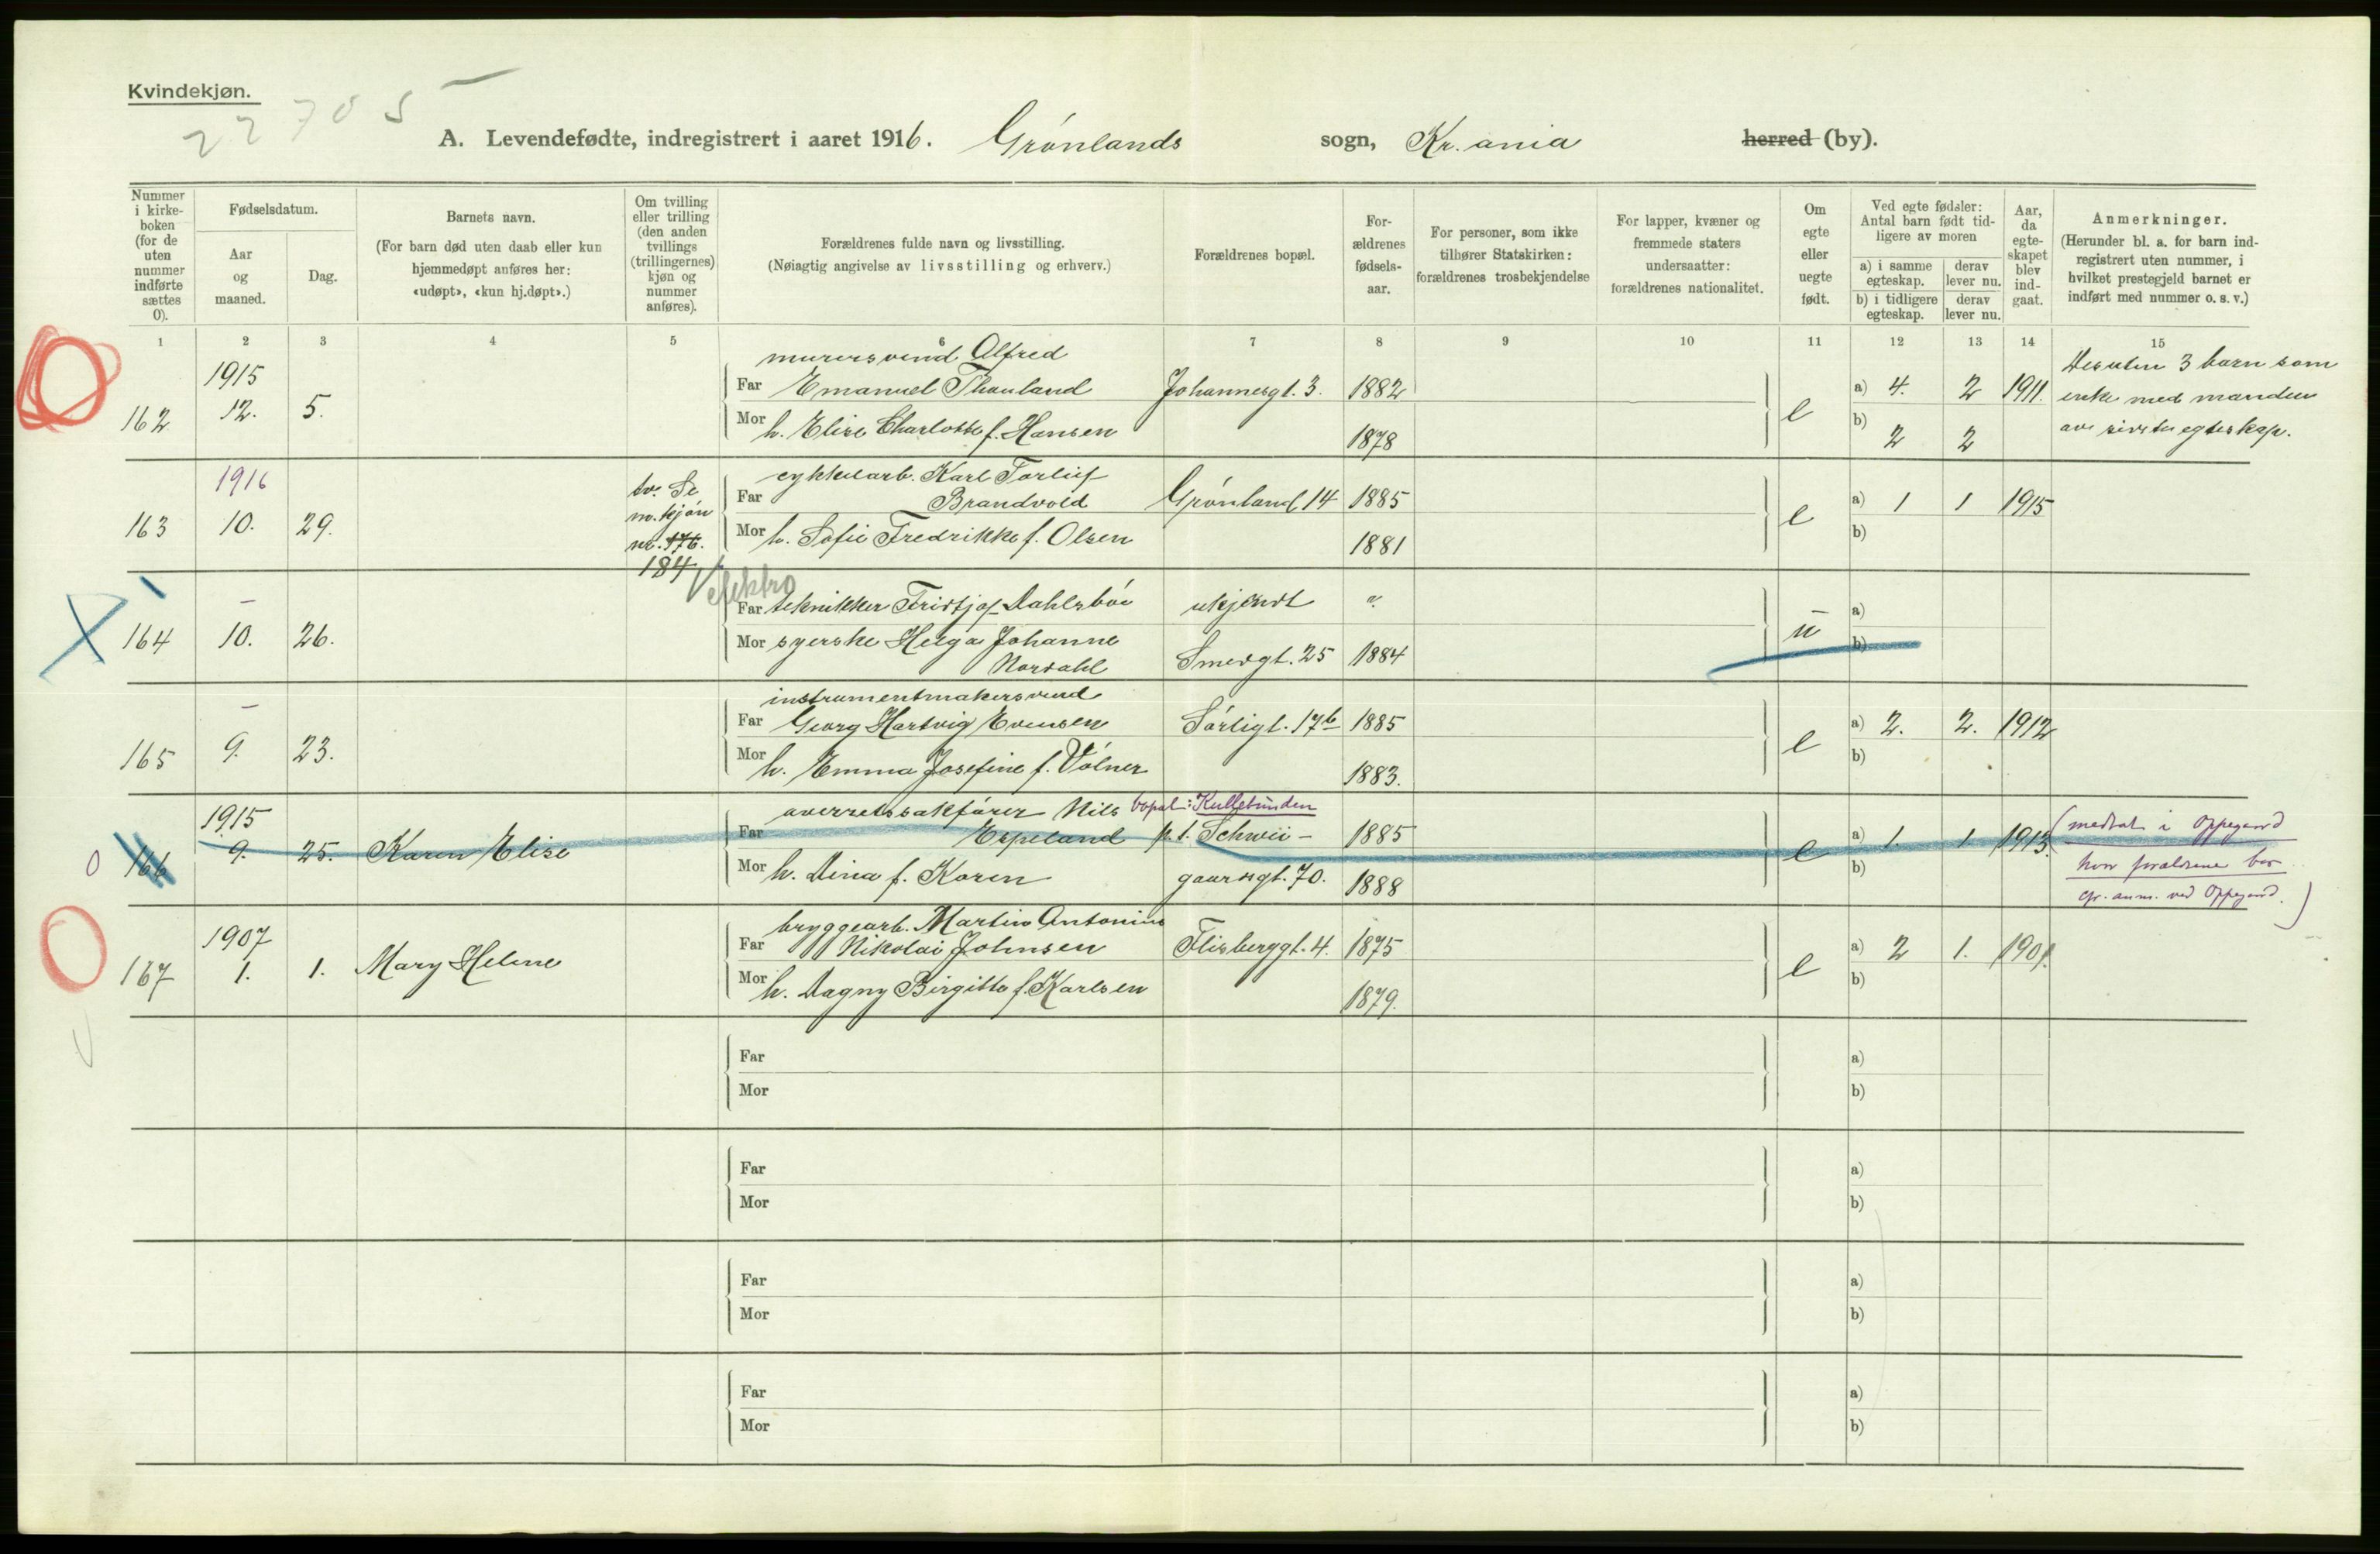 Kvindekjøn.
22705
A. Levendefødte, indregistrert i aaret 1916. Grønlands sogn, Kr.ania herred (by).
Nummer i kirke-boken (for de uten nummer indførte sættes 0).
Fødselsdatum.
Aar og maaned.
Dag.
Barnets navn.
(For barn død uten daab eller kun hjemmedøpt anføres her: «udøpt», «kun hj.døpt».)
Om tvilling eller trilling (den anden tvillings (trillingernes) kjøn og nummer anføres).
Forældrenes fulde navn og livsstilling.
(Nøiagtig angivelse av livsstilling og erhverv.)
Forældrenes bopæl.
For-ældrenes fødsels-aar.
For personer, som ikke tilhører Statskirken: forældrenes trosbekjendelse
For lapper, kvæner og fremmede staters undersaatter: forældrenes nationalitet.
Om egte eller uegte født.
Ved egte fødsler: Antal barn født tid-ligere av moren
a) i samme egteskap.
derav lever nu.
b) i tidligere egteskap.
derav lever nu.
Aar, da egte-skapet blev ind-gaat.
Anmerkninger.
(Herunder bl. a. for barn ind-registrert uten nummer, i hvilket prestegjeld barnet er indført med nummer o. s. v.)
1 2 3 4 5 6 7 8 9 10 11 12 13 14 15
murersvend Alfred
162 1915 12. 5. Far Emanuel Thauland Johannesgt. 3. 1882 e a) 4. 2 1911.
Mor h. Elise Charlotte f. Hansen 1878 b) 2 2
Desuten 3 barn som
enke med manden
av sidste egteskap.
cykkelarb. Karl Torlief
163 1916 10. 29. tv. Se m.kjøn nr. 176. 184 Far Brandvold Grønland 14 1885 e a) 1 1 1915
Mor h. Sofie Fredrikke f. Olsen 1881 b)
elektro
164 – 10. 26. Far tekniker Fridtjof Dahlsbøe ukjendt ". u a)
Mor syerske Helga Johanne b)
Nordahl Smedgt. 25 1884
instrumentmakersvend
165 – 9. 23. Far Georg Hartvig Evensen Sørligt. 17b 1885 e a) 2. 2. 1912
Mor h. Emma Josefine f. Vølner 1883. b)
overretssakfører Nils bopæl: Kullebunden
0 166 1915 9. 25. Karen Elise Far Espeland p.t. Schwei- 1885 e a) 1. 1. 1913.
Mor h. Dina f. Koren gaardsgt. 70. 1888 b)
(medtat i Oppegaard
hvor forældrene bor
cfr. anm. ved Oppegaard.)
bryggearb. Martin Antonius
167 1907 1. 1. Mary Helene Far Nikolai Johnsen Flisberggt. 4. 1875 e a) 2 1. 1901.
Mor h. Dagny Birgitte f. Karlsen 1879. b)
Far a)
Mor b)
Far a)
Mor b)
Far a)
Mor b)
Far a)
Mor b)